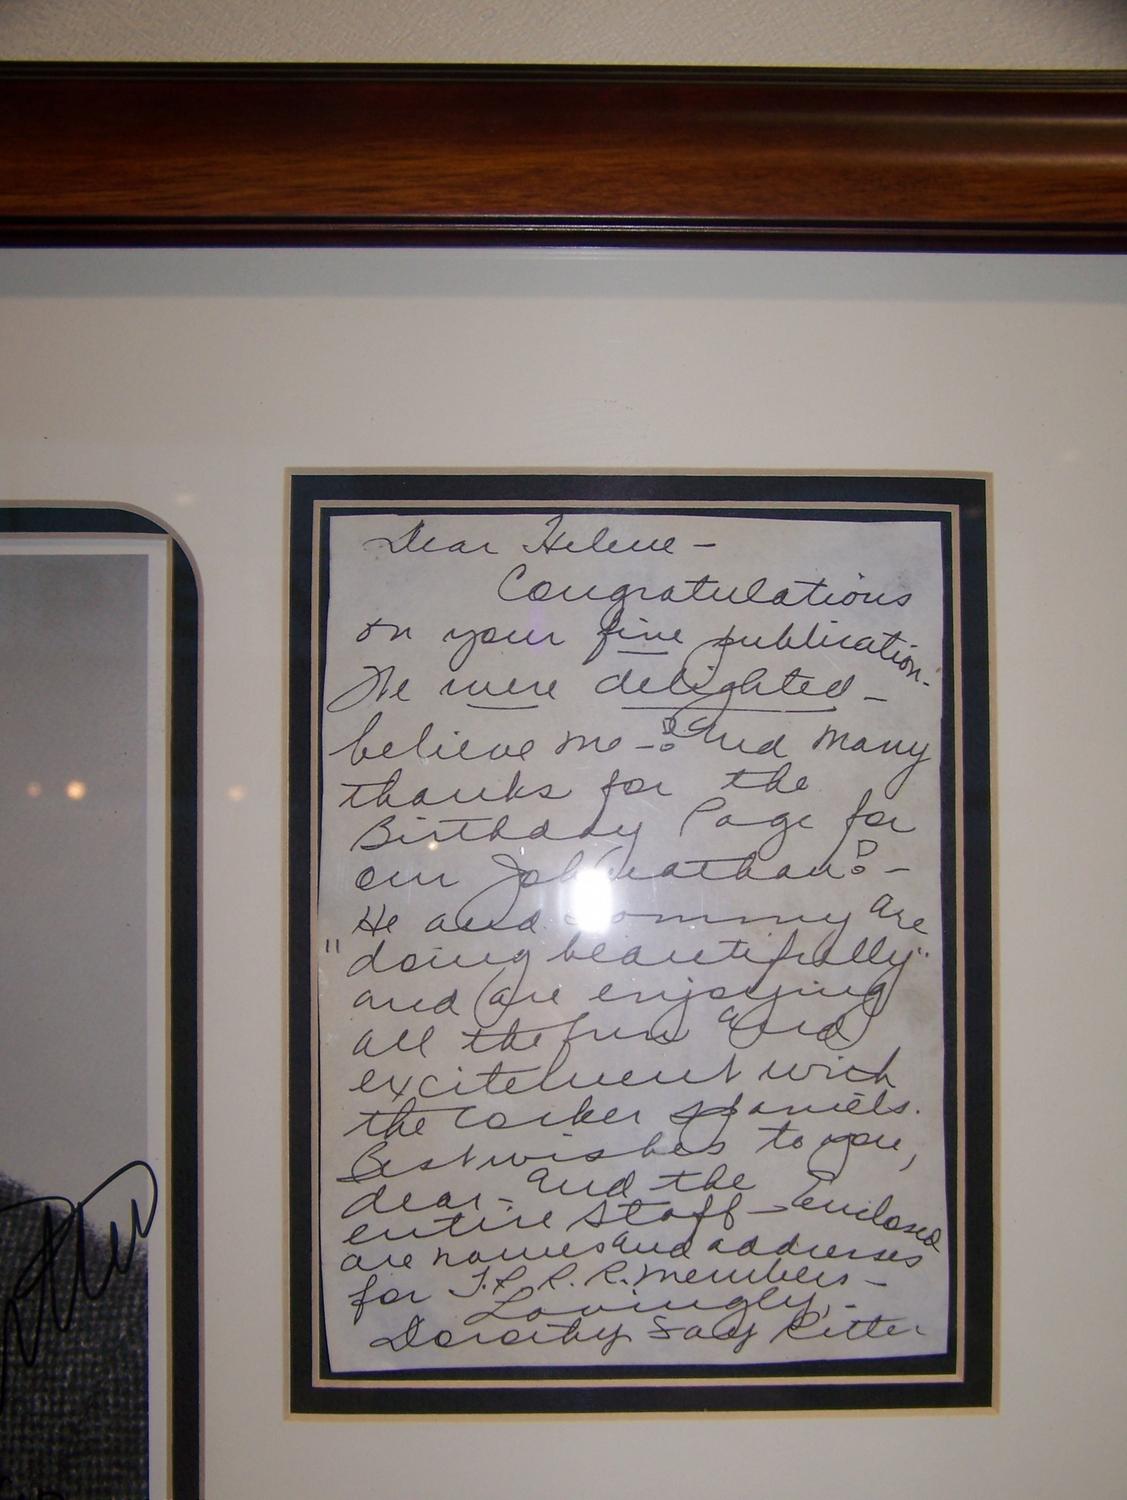 Dear Helene -
Congratulations
on your fine publication -
We were delighted -
believe me -! and many
thanks for the
Birthday Page for
our Johnathan! -
He and Tommy are
"doing beautifully"
and are enjoying
all the fun and
excitement with
the cocker spaniels.
Best wishes to you,
dear - and the
entire staff - Enclosed
are names and addresses
for members -
Lovingly, -
Dorothy Fay Ritter